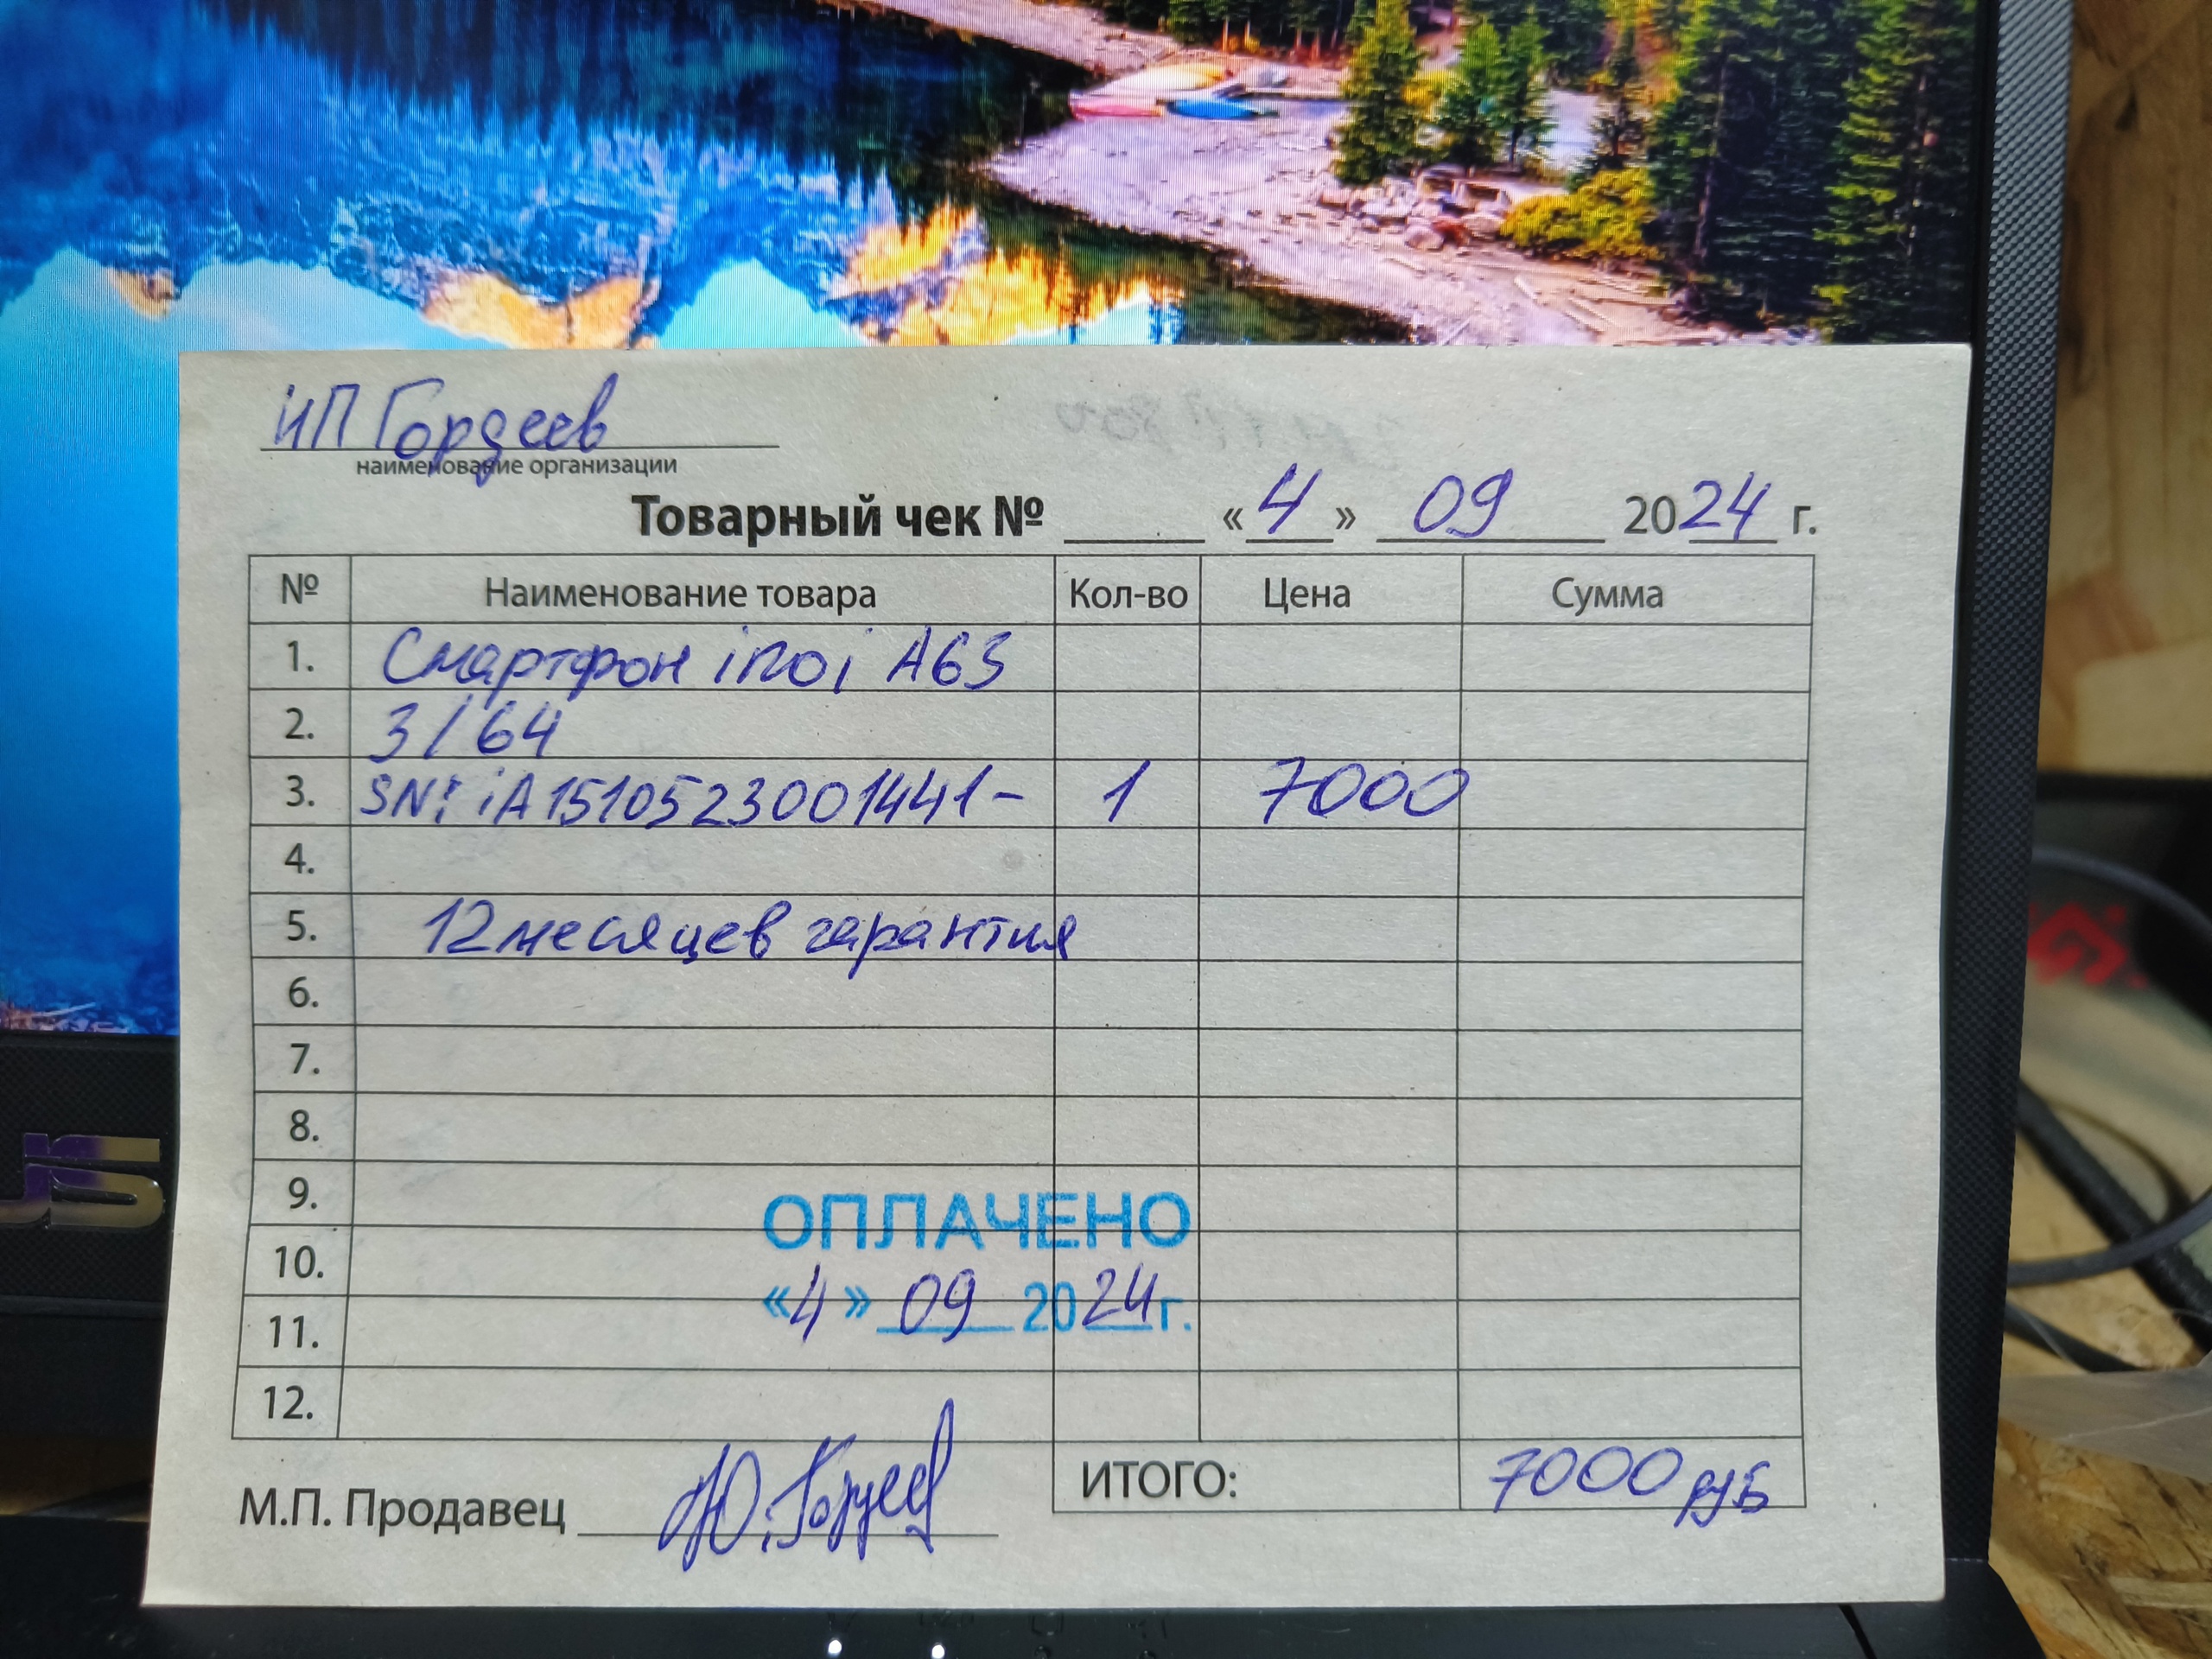 ИП Гордеев
наименование организации
Товарный чек № «4» 09 2024 г.
№ Наименование товара Кол-во Цена Сумма
1. Смартфон inoi A63
2. 3/64
3. SN: iA1510523001441- 1 7000
4.
5. 12 месяцев гарантия
6.
7.
8.
9.
ОПЛАЧЕНО
10.
«4» 09 2024г.
11.
12.
ИТОГО: 7000 руб
М.П. Продавец Ю.Гордеев